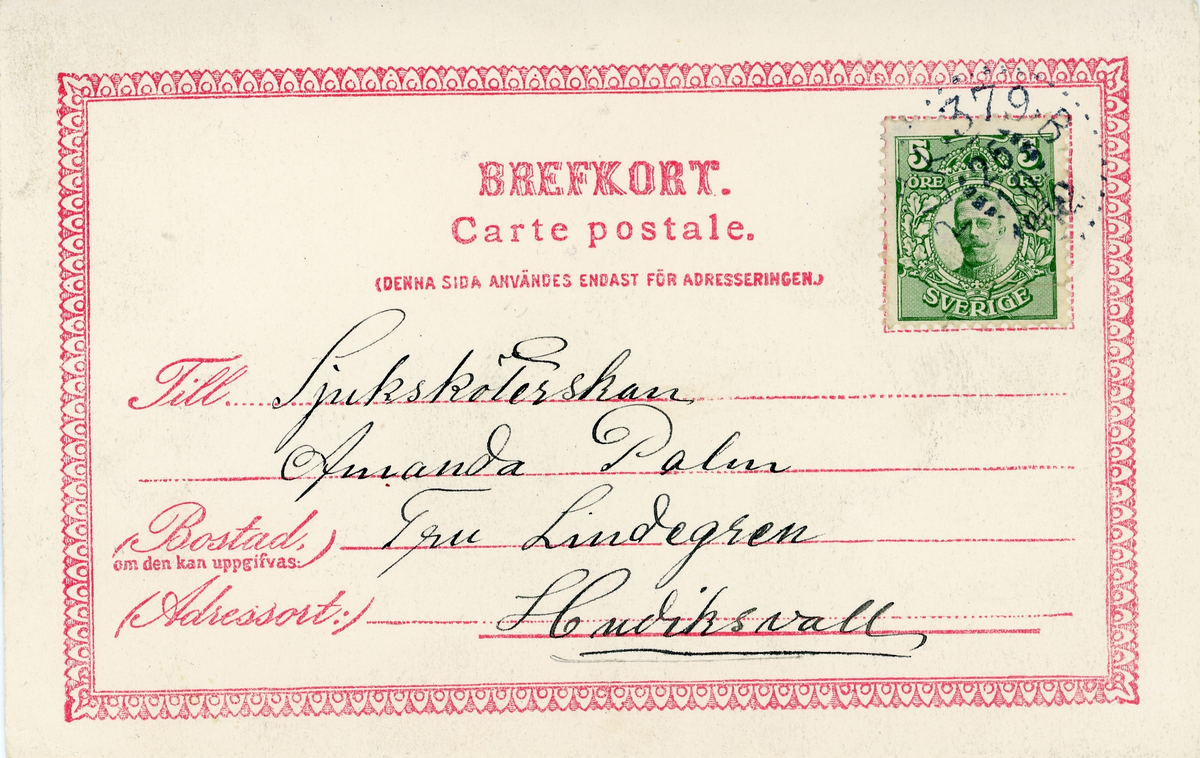 BREFKORT.
Carte postale.
(DENNA SIDA ANVÄNDES ENDAST FÖR ADRESSERINGEN.)
379
5 5
ÖRE ÖRE
SVERIGE
Till Sjuksköterskan
Amanda Palm
(Bostad, Fru Lindegren
om den kan uppgifvas:)
(Adressort:) Hudiksvall